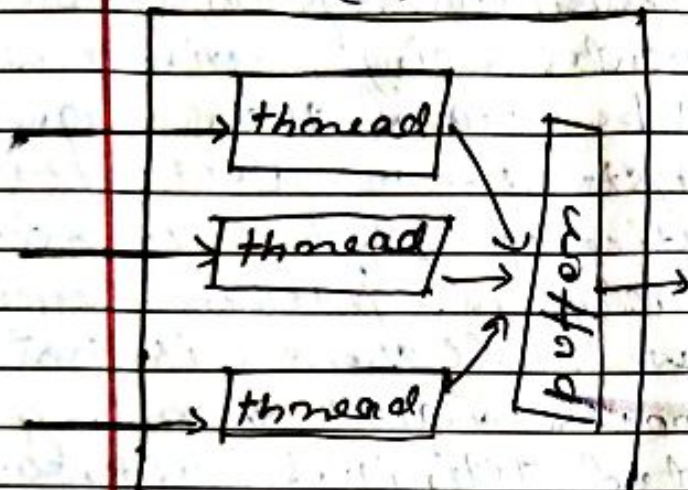 thread
thread
thread
buffer